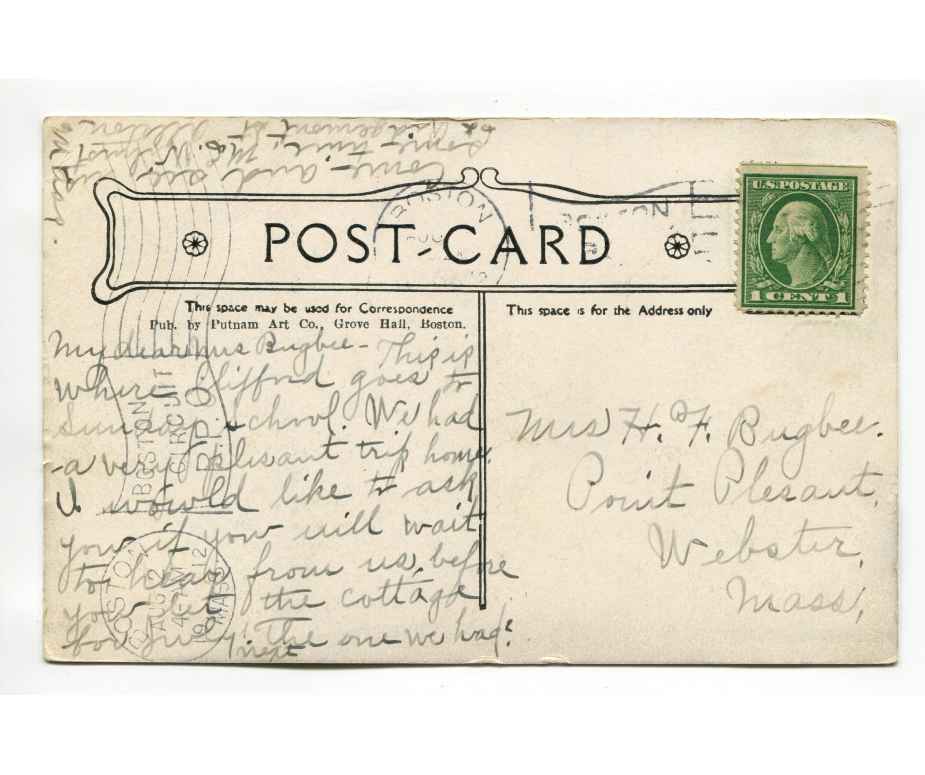 Come and see us
some time, Mrs. W.
Ridgemont St. Allston
POST CARD
BOSTON
BOSTON
U.S. POSTAGE
1 CENT 1
This space may be used for Correspondence
Pub. by Putnam Art Co., Grove Hall, Boston.
This space is for the Address only
My dear Mrs Bugbee - This is
where Clifford goes to
Sunday school. We had
a very plesant trip home.
I would like to ask
you if you will wait
to hear from us before
you let the cottage
for July the one we had.
next
Mrs H. F. Bugbee.
Point Plesant,
Webster,
Mass,
BOSTON
CIRCUIT
R P O
BOSTON
AUG 2
4 PM
1912
MASS